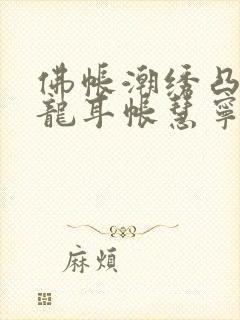 佛帳潮绣凸
龍耳帳慧寧
麻煩